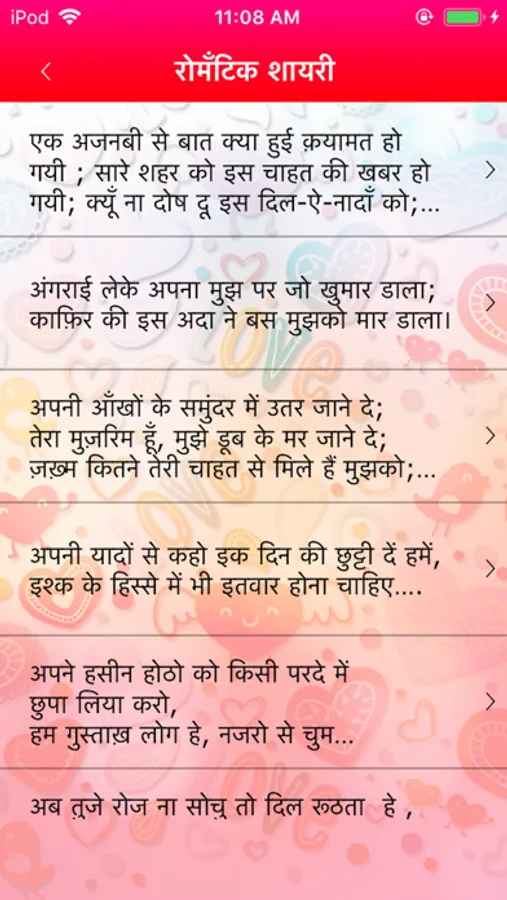 iPod 11:08 AM
रोमँटिक शायरी
एक अजनबी से बात क्या हुई क़यामत हो
गयी ; सारे शहर को इस चाहत की खबर हो
गयी; क्यूँ ना दोष दू इस दिल-ऐ-नादाँ को;...
अंगराई लेके अपना मुझ पर जो खुमार डाला;
काफ़िर की इस अदा ने बस मुझको मार डाला।
अपनी आँखों के समुंदर में उतर जाने दे;
तेरा मुज़रिम हूँ, मुझे डूब के मर जाने दे;
ज़ख़्म कितने तेरी चाहत से मिले हैं मुझको;...
अपनी यादों से कहो इक दिन की छुट्टी दें हमें,
इश्क के हिस्से में भी इतवार होना चाहिए....
अपने हसीन होठो को किसी परदे में
छुपा लिया करो,
हम गुस्ताख़ लोग हे, नजरो से चुम...
अब तुजे रोज ना सोचु तो दिल रूठता हे ,
love
love
love